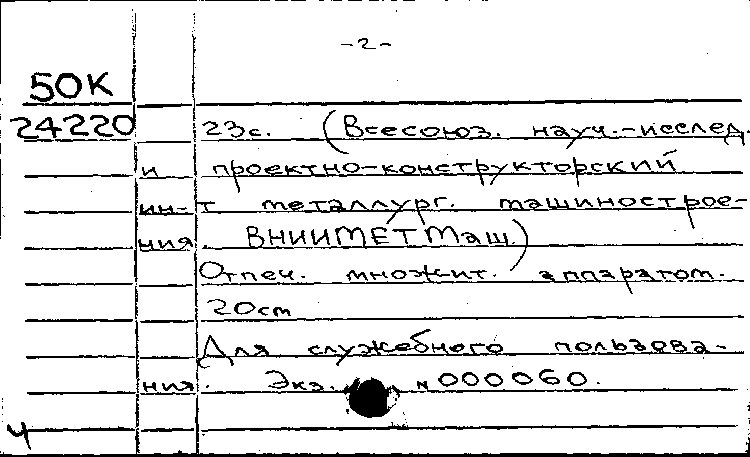 -2-
50К
24220 23с. (Всесоюз. науч.-исслед.
и проектно-конструкторский
ин-т металлург. машиностроe-
ния. ВНИИМЕТМаш.)
Отпеч. множит. аппаратом.
20см
Для служебного пользова-
ния. Экз. N000060.
Ч